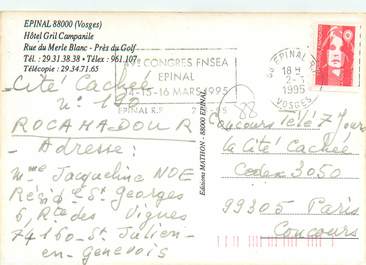 EPINAL 88000 (Vosges)
Hôtel Gril Campanile
Rue du Merle Blanc - Près du Golf
Tél. : 29.31.38.38 - Télex : 961.107
Télécopie : 29.34.71.65
CONGRES FNSEA
EPINAL
14-15-16 MARS 1995
EPINAL R.P.
88 EPINAL
18 H
2-
1995
VOSGES
Cité Cachée
n° 190
ROCAMADOUR
- Adresse :
Mme Jacqueline NOE
Résid. St. Georges
6, Rte des Vignes
74160 - St Julien
-en- Genevois
Editions MATHON - 88000 EPINAL
88
Concours Télé 7 Jours
la Cité Cachée
Codex 3050
99305 Paris
Concours